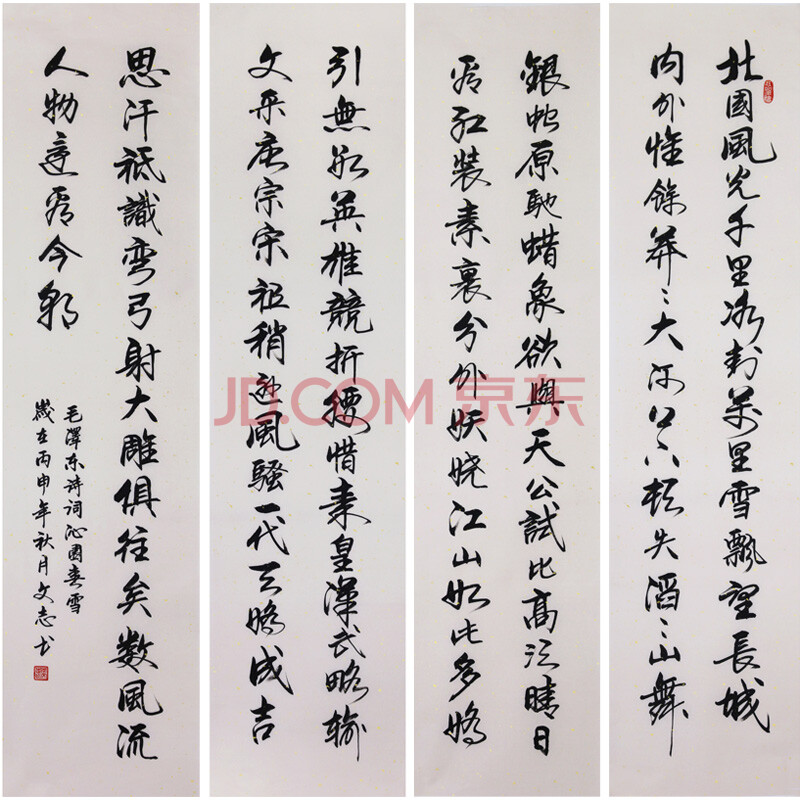 北國風光千里冰封萬里雪飄望長城
内外惟餘莽〻大河上下頓失滔〻山舞
銀蛇原馳蜡象欲與天公試比高須晴日
看紅裝素裹分外妖娆江山如此多嬌
引無數英雄競折腰惜秦皇漢武略輸
文采唐宗宋祖稍遜風騷一代天嬌成吉
思汗祗識彎弓射大雕俱往矣數風流
人物還看今朝
毛澤东诗词沁園春雪
歲在丙申年秋月文志书
JD.COM 京东